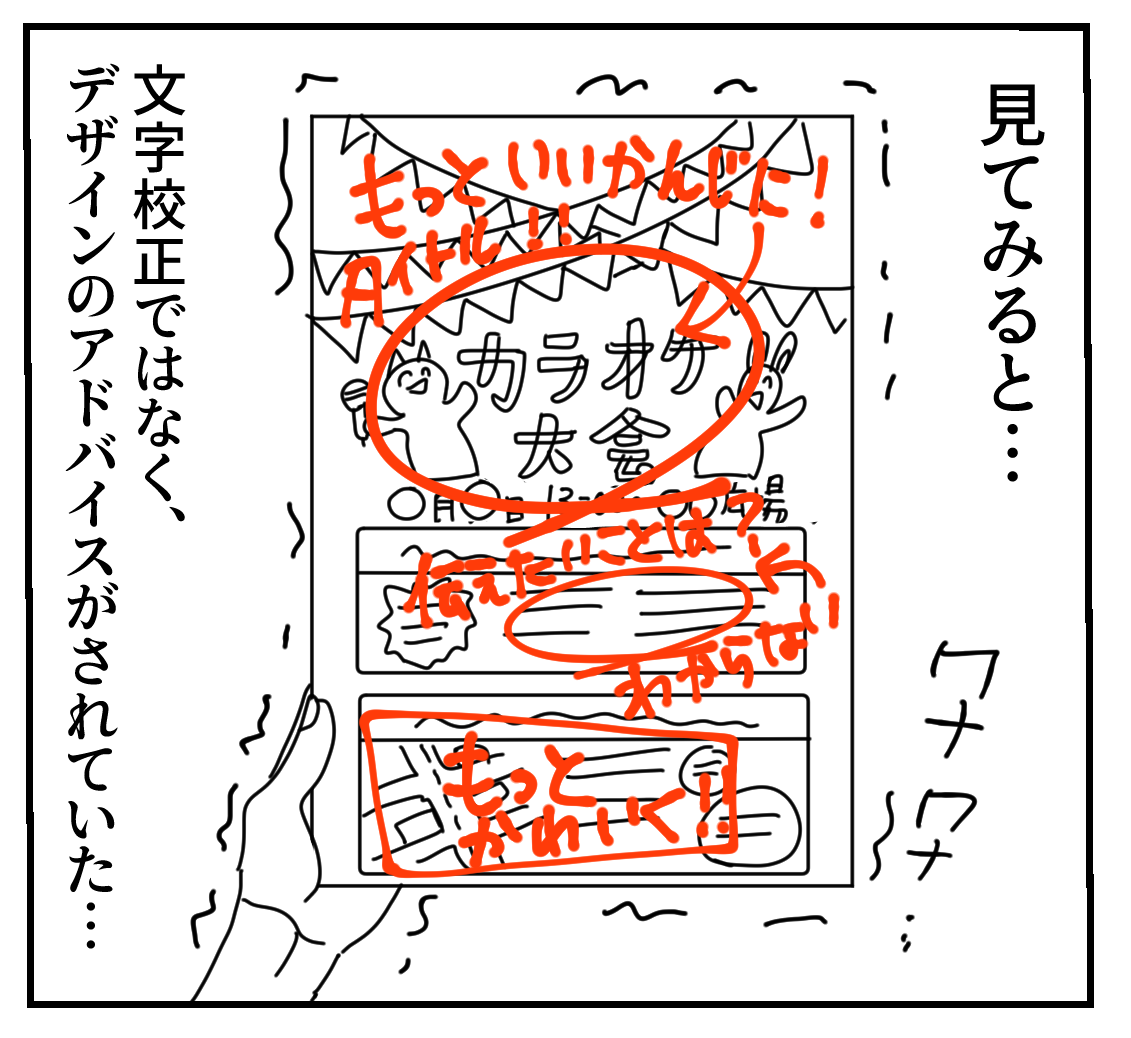 見てみると…
もっといいかんじに！
タイトル!!
カラオケ
大会
〇月〇日 13:00〜 〇〇広場
伝えたいことは？
わからない
もっと
かわいく!!
ワナ
ワナ
…
文字校正ではなく、
デザインのアドバイスがされていた…